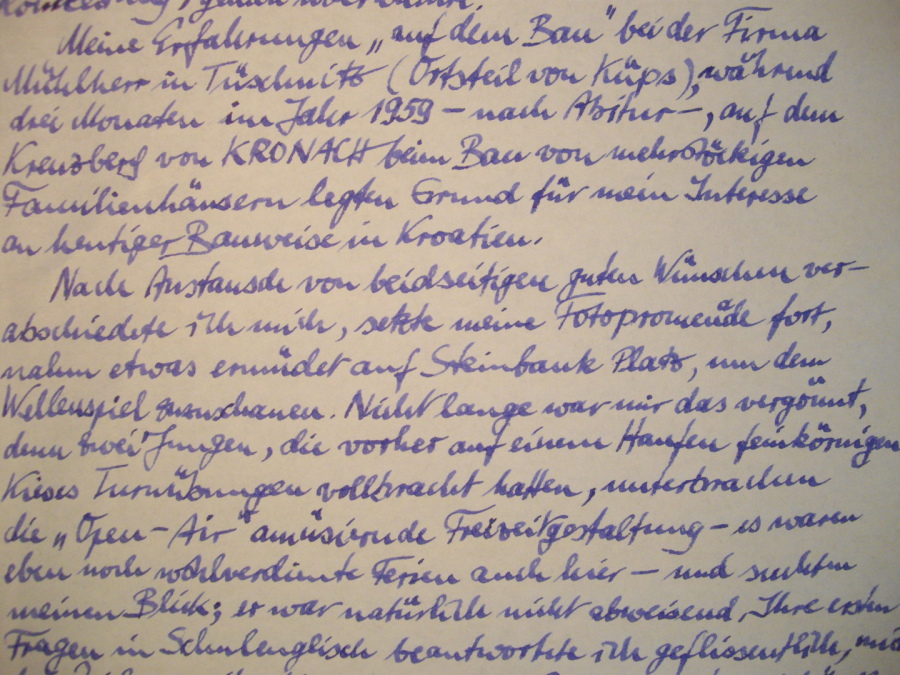 Meine Erfahrungen „auf dem Bau" bei der Firma
Mühlherr in Tüschnitz (Ortsteil von Küps), während
drei Monaten im Jahr 1959 – nach Abitur –, auf dem
Kreuzberg von KRONACH beim Bau von mehrstöckigen
Familienhäusern legten Grund für mein Interesse
an heutiger Bauweise in Kroatien.
Nach Austausch von beidseitigen guten Wünschen ver-
abschiedete ich mich, setzte meine Fotopromenade fort,
nahm etwas ermüdet auf Steinbank Platz, um dem
Wellenspiel zuzuschauen. Nicht lange war mir das vergönnt,
denn zwei Jungen, die vorher auf einem Haufen feinkörnigen
Kieses Turnübungen vollbracht hatten, unterbrachen
die „Open-Air" amüsirnde Freizeitgestaltung – es waren
eben noch wohlverdiente Ferien auch hier – und suchten
meinen Blick; er war natürlich nicht abweisend, Ihre ersten
Fragen in Schulenglisch beantwortete ich geflissentlich, und